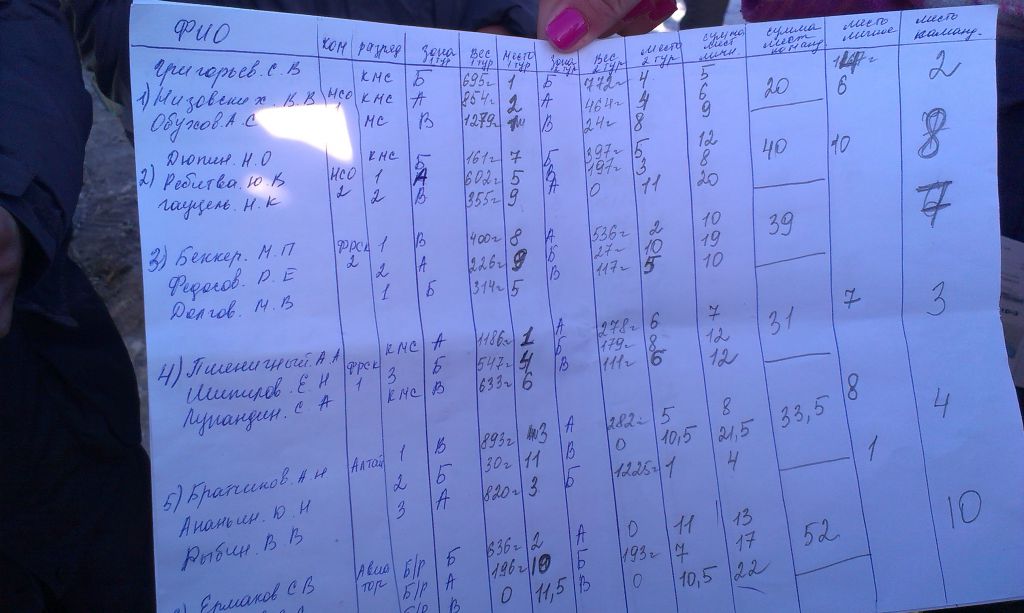 ФИО ком разряд зона 1 тур Вес 1 тур место 1 тур Зона 2 тур Вес 2 тур место 2 тур сумма мест личн. сумма мест команд. место личное место команд.
Григорьев. С. В кмс Б 695г 1 Б 772г 4 5 2
1) Низовских. В. В НСО 1 кмс А 854г 2 А 464г 4 6 20 6
Обухов. А. С мс В 1279г В 24г 8 9
Дюпин. Н. О кмс Б 161г 7 Б 397г 5 12 40 10 8
2) Ребитва. Ю. В НСО 2 1 А 602г 5 Б 197г 3 8
Гауцель. Н. К 2 В 355г 9 А 0 11 20
7
3) Беккер. М. П ФРСК 2 1 В 400г 8 А 536г 2 10 39
Федосов. Р. Е 2 А 226г 9 Б 27г 10 19
Долгов. М. В 1 Б 314г 5 В 117г 5 10
4) Пшеничный. А. А ФРСК 1 кмс А 1186г 1 А 278г 6 7 31 7 3
Шипилов. Е. Н 3 Б 547г 4 Б 179г 8 12
Лупандин. С. А кмс В 633г 6 В 111г 6 12
5) Братчиков. А. Н Алтай 1 В 893г 3 А 282г 5 8 33,5 8 4
Ананьин. Ю. Н 2 Б 30г 11 В 0 10,5 21,5
Рыбин. В. В 3 А 820г 3 Б 1225г 1 4 1
Ермаков С В Авиатор Б/Р Б 636г 2 А 0 11 13 52 10
Б/Р А 196г 10 Б 193г 7 17
Б/Р В 0 11,5 В 0 10,5 22